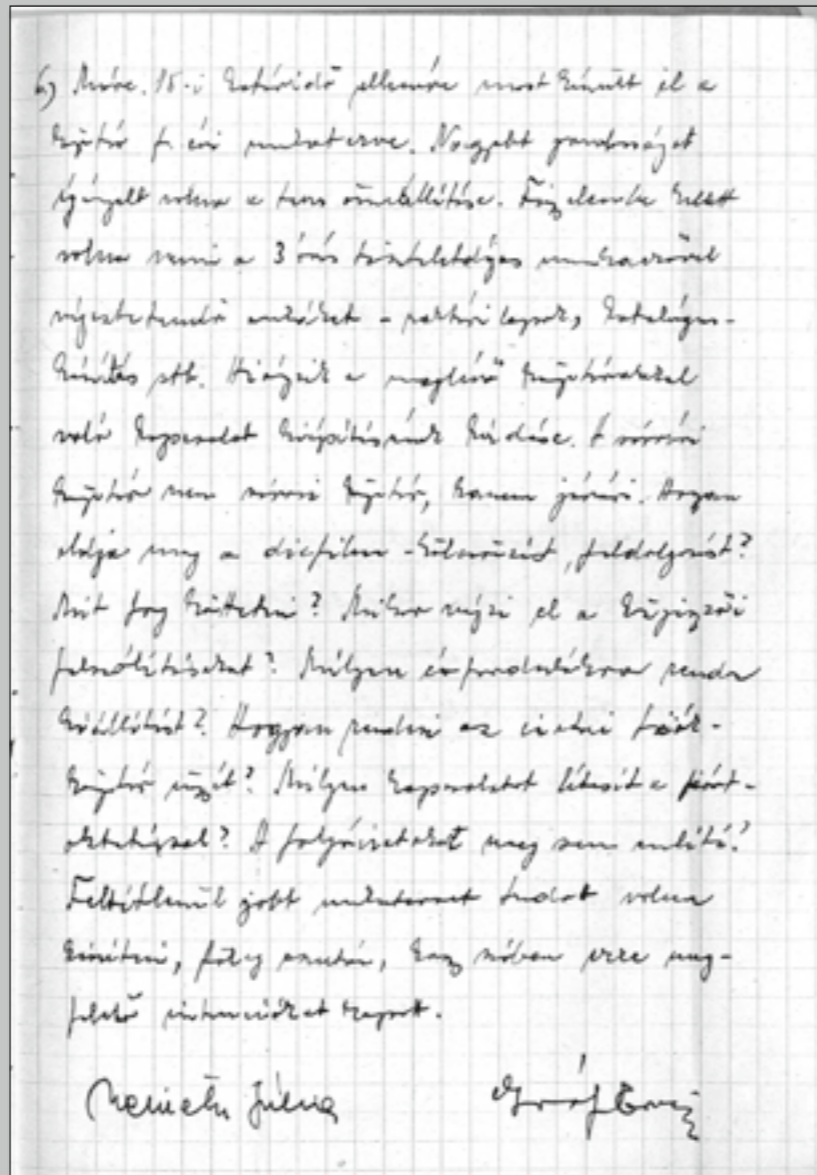 6) Márc. 15-i határidő ellenére most készült el a
könyvtár f. évi munkaterve. Nagyobb gondosságot
igényelt volna a terv összeállítása. Figyelembe kellett
volna venni a 3 órás tiszteletdíjas munkaerővel
végeztetendő munkákat - raktári lapok, katalógus-
készítés stb. Hiányzik a meglévő könyvtárakkal
való kapcsolat kiépítésének kérdése. A városi
könyvtár nem városi könyvtár, hanem járási. Hogyan
oldja meg a diafilm-kölcsönzést, feldolgozást?
Mit fog köttetni? Mikor végzi el a
felszólításokat? Milyen évfordulókra rendez
kiállítást? Hogyan rendezi az fiók-
könyvtár ügyét? Milyen kapcsolatot létesít a párt-
oktatással? A folyóiratokat meg sem említi?
Feltétlenül jobb munkatervet tudott volna
készíteni, főleg azután, hogy szóban erre meg-
felelő instrukciókat kapott.
Németh Júlia